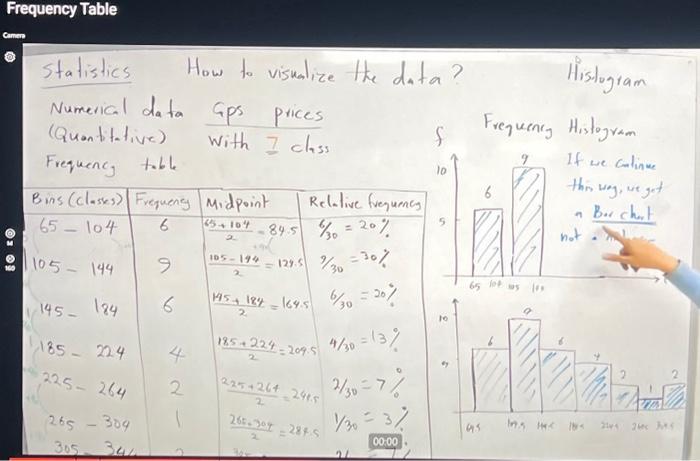 Frequency Table
Camera
Statistics How to visualize the data? Histogram
Numerical data Gps prices
(Quantitative) with 7 class
Frequency table
Bins (classes) Frequency Midpoint Relative frequency
65 - 104 6 65+104/2 = 84.5 6/30 = 20%
105 - 144 9 105-144/2 = 124.5 9/30 = 30%
145 - 184 6 145+184/2 = 164.5 6/30 = 20%
185 - 224 4 185+224/2 = 204.5 4/30 = 13%
225 - 264 2 225+264/2 = 244.5 2/30 = 7%
265 - 304 1 265+304/2 = 284.5 1/30 = 3%
305 - 344 2
00:00
f Frequency Histogram
10
5
6
9
65 104 105
If we continue
this way, we get
a Bar chart
not a
10
6
9
6
4
2
1
2